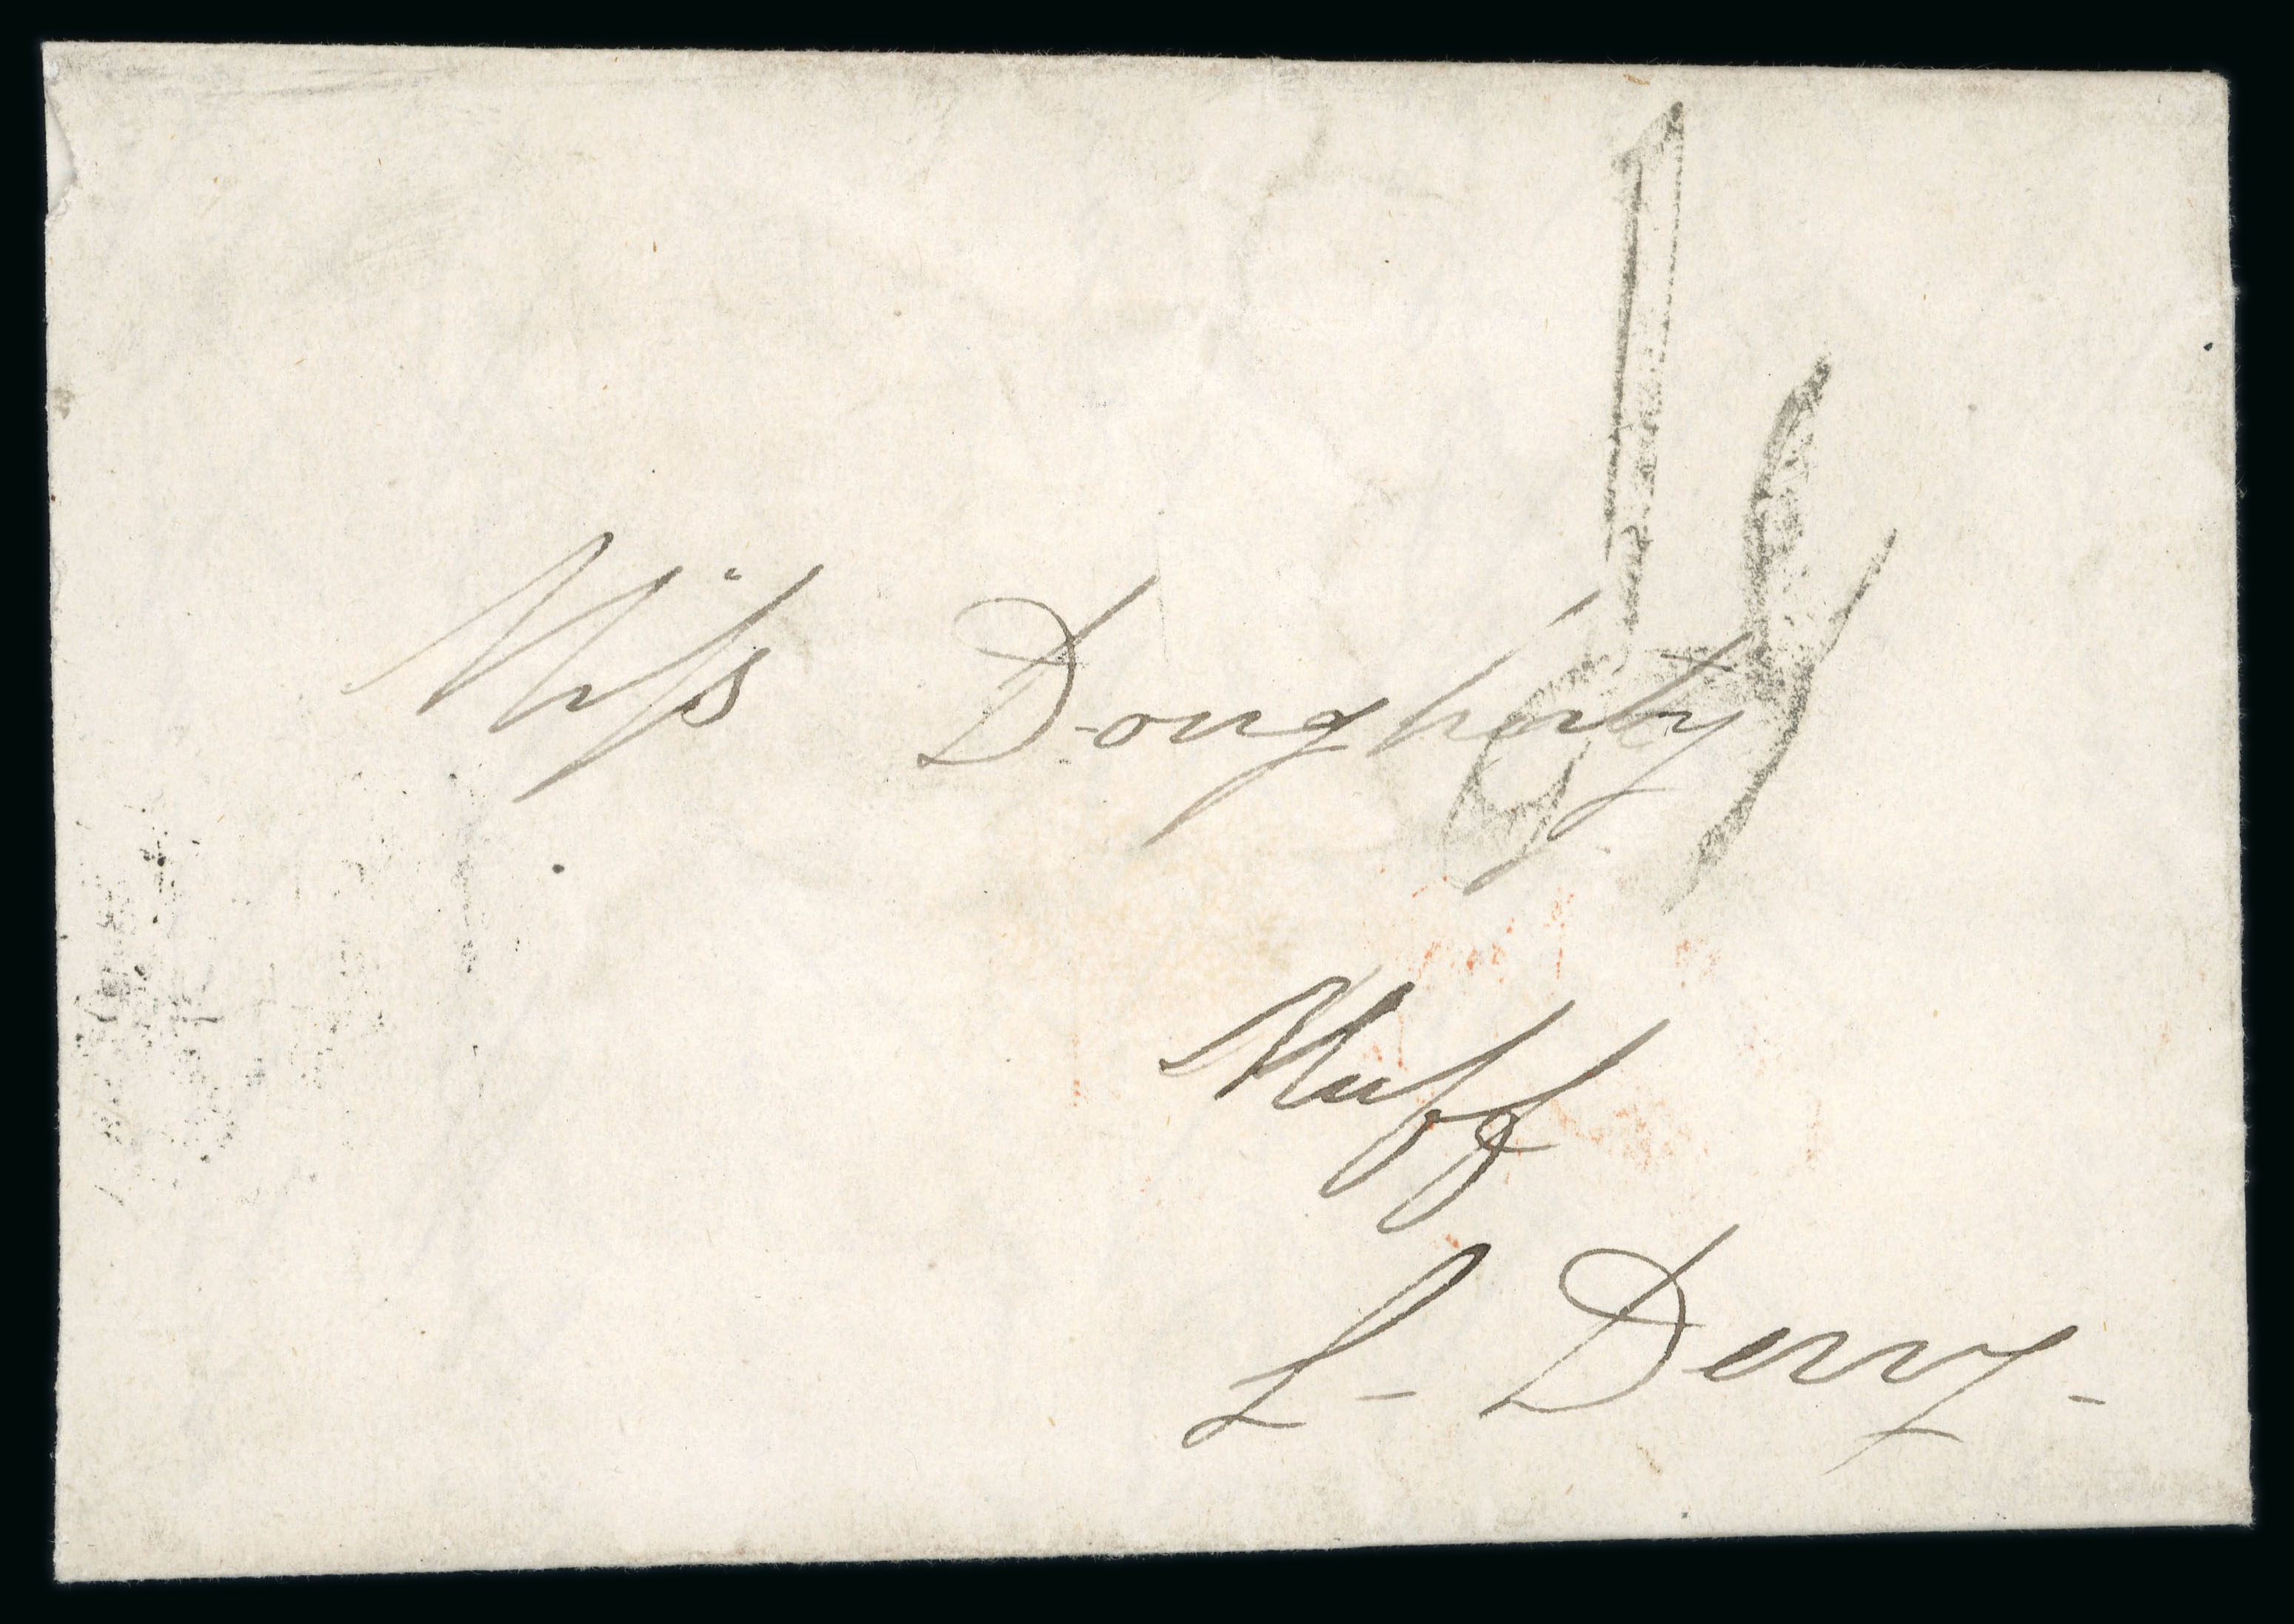 Miss Dougherty
Muff
L - Derry -